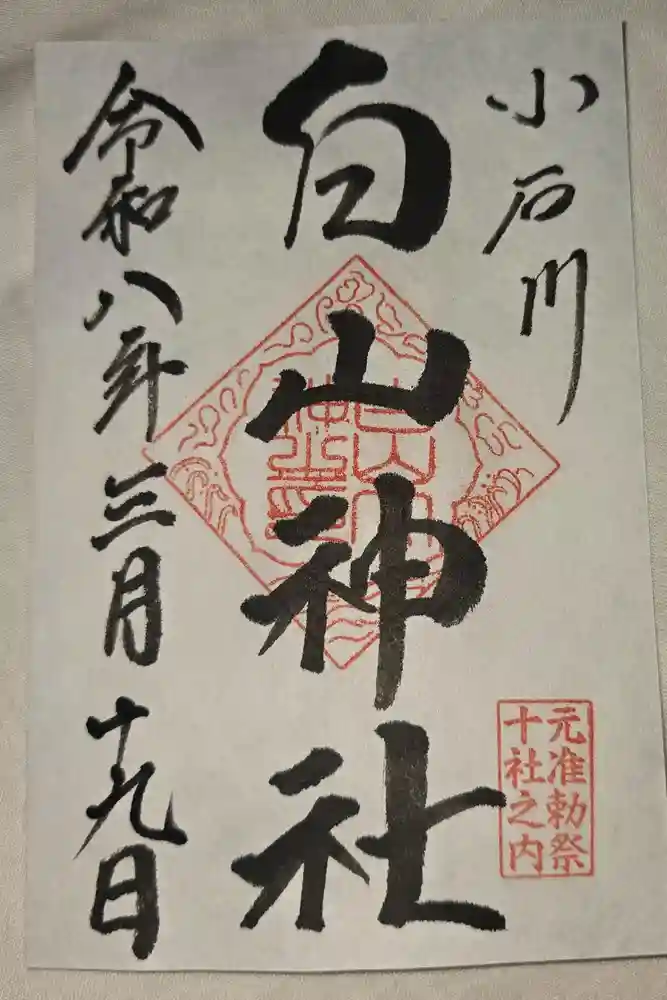 小石川
白山神社
元准勅祭
十社之内
令和八年三月十九日